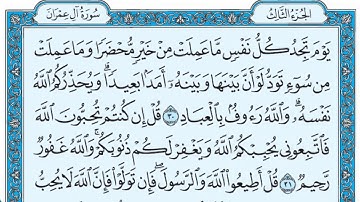 الجزء الثالث سورة آل عمران
يَوْمَ تَجِدُ كُلُّ نَفْسٍ مَّا عَمِلَتْ مِنْ خَيْرٍ مُّحْضَرًا وَمَا عَمِلَتْ
مِن سُوٓءٍ تَوَدُّ لَوْ أَنَّ بَيْنَهَا وَبَيْنَهُۥٓ أَمَدًۢا بَعِيدًا ۗ وَيُحَذِّرُكُمُ ٱللَّهُ
نَفْسَهُۥ ۗ وَٱللَّهُ رَءُوفٌۢ بِٱلْعِبَادِ ٣٠ قُلْ إِن كُنتُمْ تُحِبُّونَ ٱللَّهَ
فَٱتَّبِعُونِى يُحْبِبْكُمُ ٱللَّهُ وَيَغْفِرْ لَكُمْ ذُنُوبَكُمْ ۗ وَٱللَّهُ غَفُورٌ
رَّحِيمٌ ٣١ قُلْ أَطِيعُوا۟ ٱللَّهَ وَٱلرَّسُولَ ۖ فَإِن تَوَلَّوْا۟ فَإِنَّ ٱللَّهَ لَا يُحِبُّ